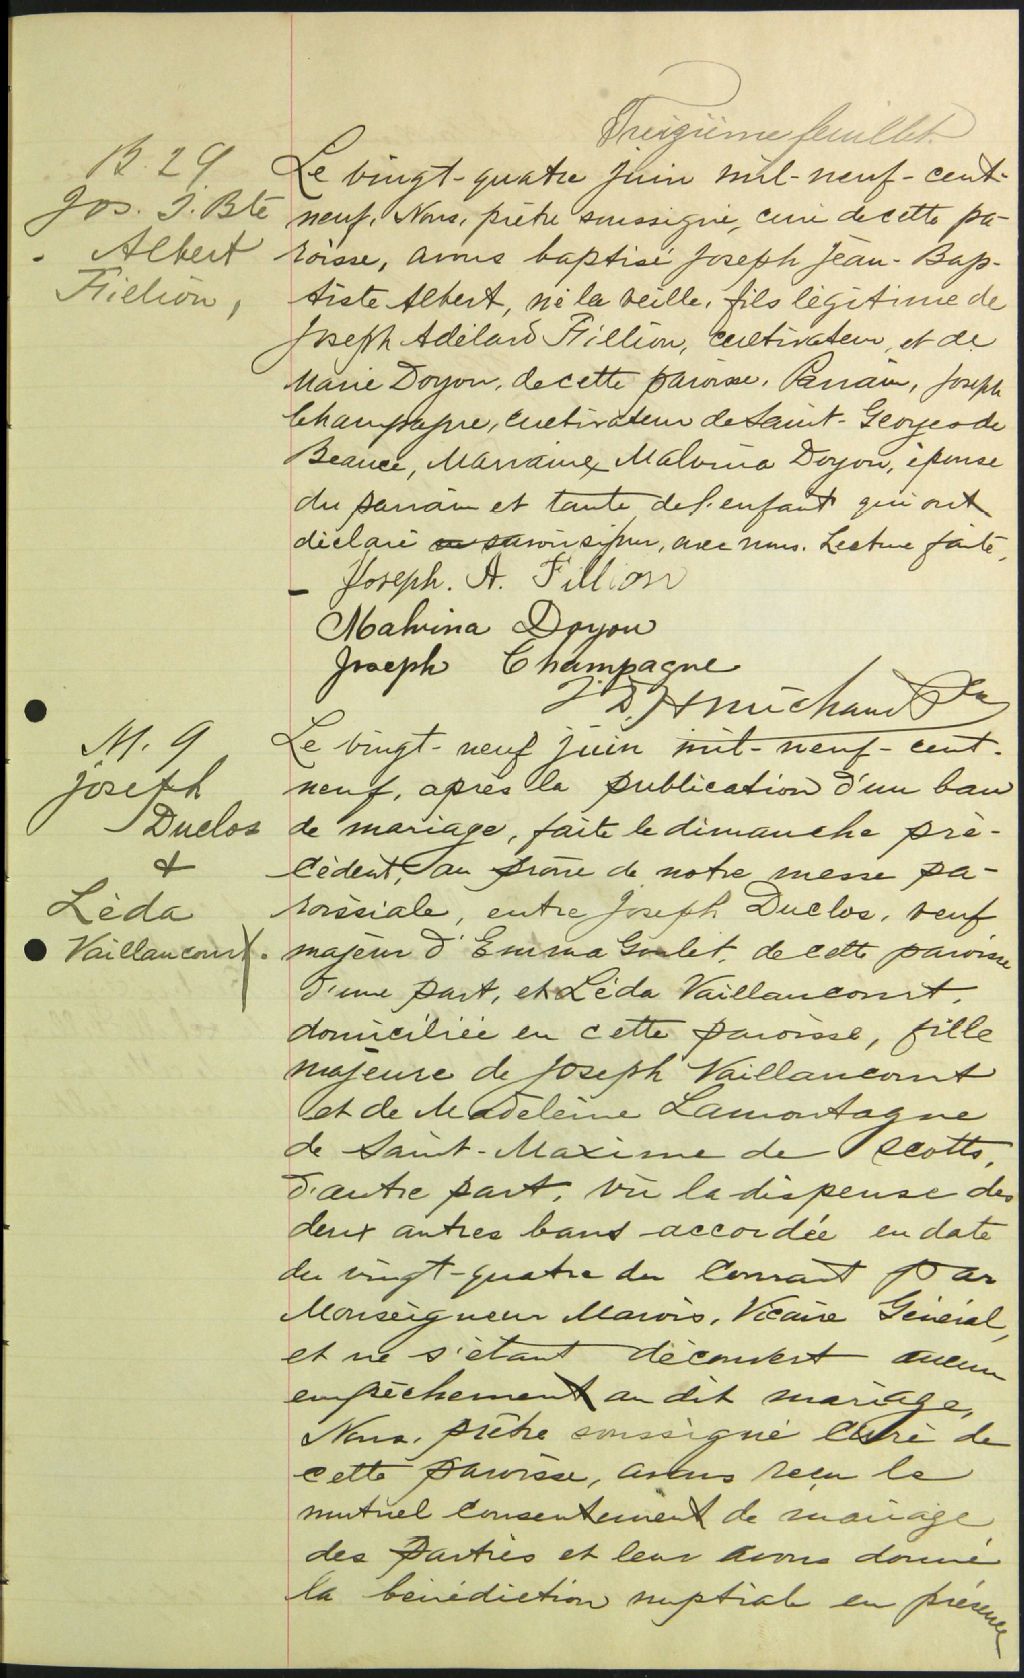 Treizième feuillet.
B. 29
Jos. J. Bte
Albert
Fillion,
Le vingt-quatre juin mil-neuf-cent-
neuf, Nous, prêtre soussigné, curé de cette pa-
roisse, avons baptisé Joseph Jean-Bap-
tiste Albert, né la veille, fils légitime de
Joseph Adélard Fillion, cultivateur, et de
Marie Doyon, de cette paroisse. Parrain, Joseph
Champagne, cultivateur de Saint-Georges de
Beauce, Marraine, Malvina Doyon, épouse
du parrain et tante de l'enfant qui ont
déclaré savoir signer, avec nous. Lecture faite,
Joseph. A. Fillion
Malvina Doyon
Joseph Champagne
J. D. Michaud Ptr
M. 9
Joseph
Duclos
&
Léda
Vaillancourt.
Le vingt-neuf juin mil-neuf-cent-
neuf, après la publication d'un ban
de mariage, faite le dimanche pré-
cédent, au prône de notre messe pa-
roissiale, entre Joseph Duclos, veuf
majeur d'Emma Goulet, de cette paroisse
d'une part, et Léda Vaillancourt,
domiciliée en cette paroisse, fille
majeure de Joseph Vaillancourt
et de Madeleine Lamontagne
de Saint-Maxime de Scotts,
d'autre part, vu la dispense des
deux autres bans accordée en date
du vingt-quatre du courant par
Monseigneur Marois, Vicaire Général,
et ne s'étant découvert aucun
empêchement au dit mariage,
Nous, prêtre soussigné curé de
cette paroisse, avons reçu le
mutuel consentement de mariage
des parties et leur avons donné
la bénédiction nuptiale en présence